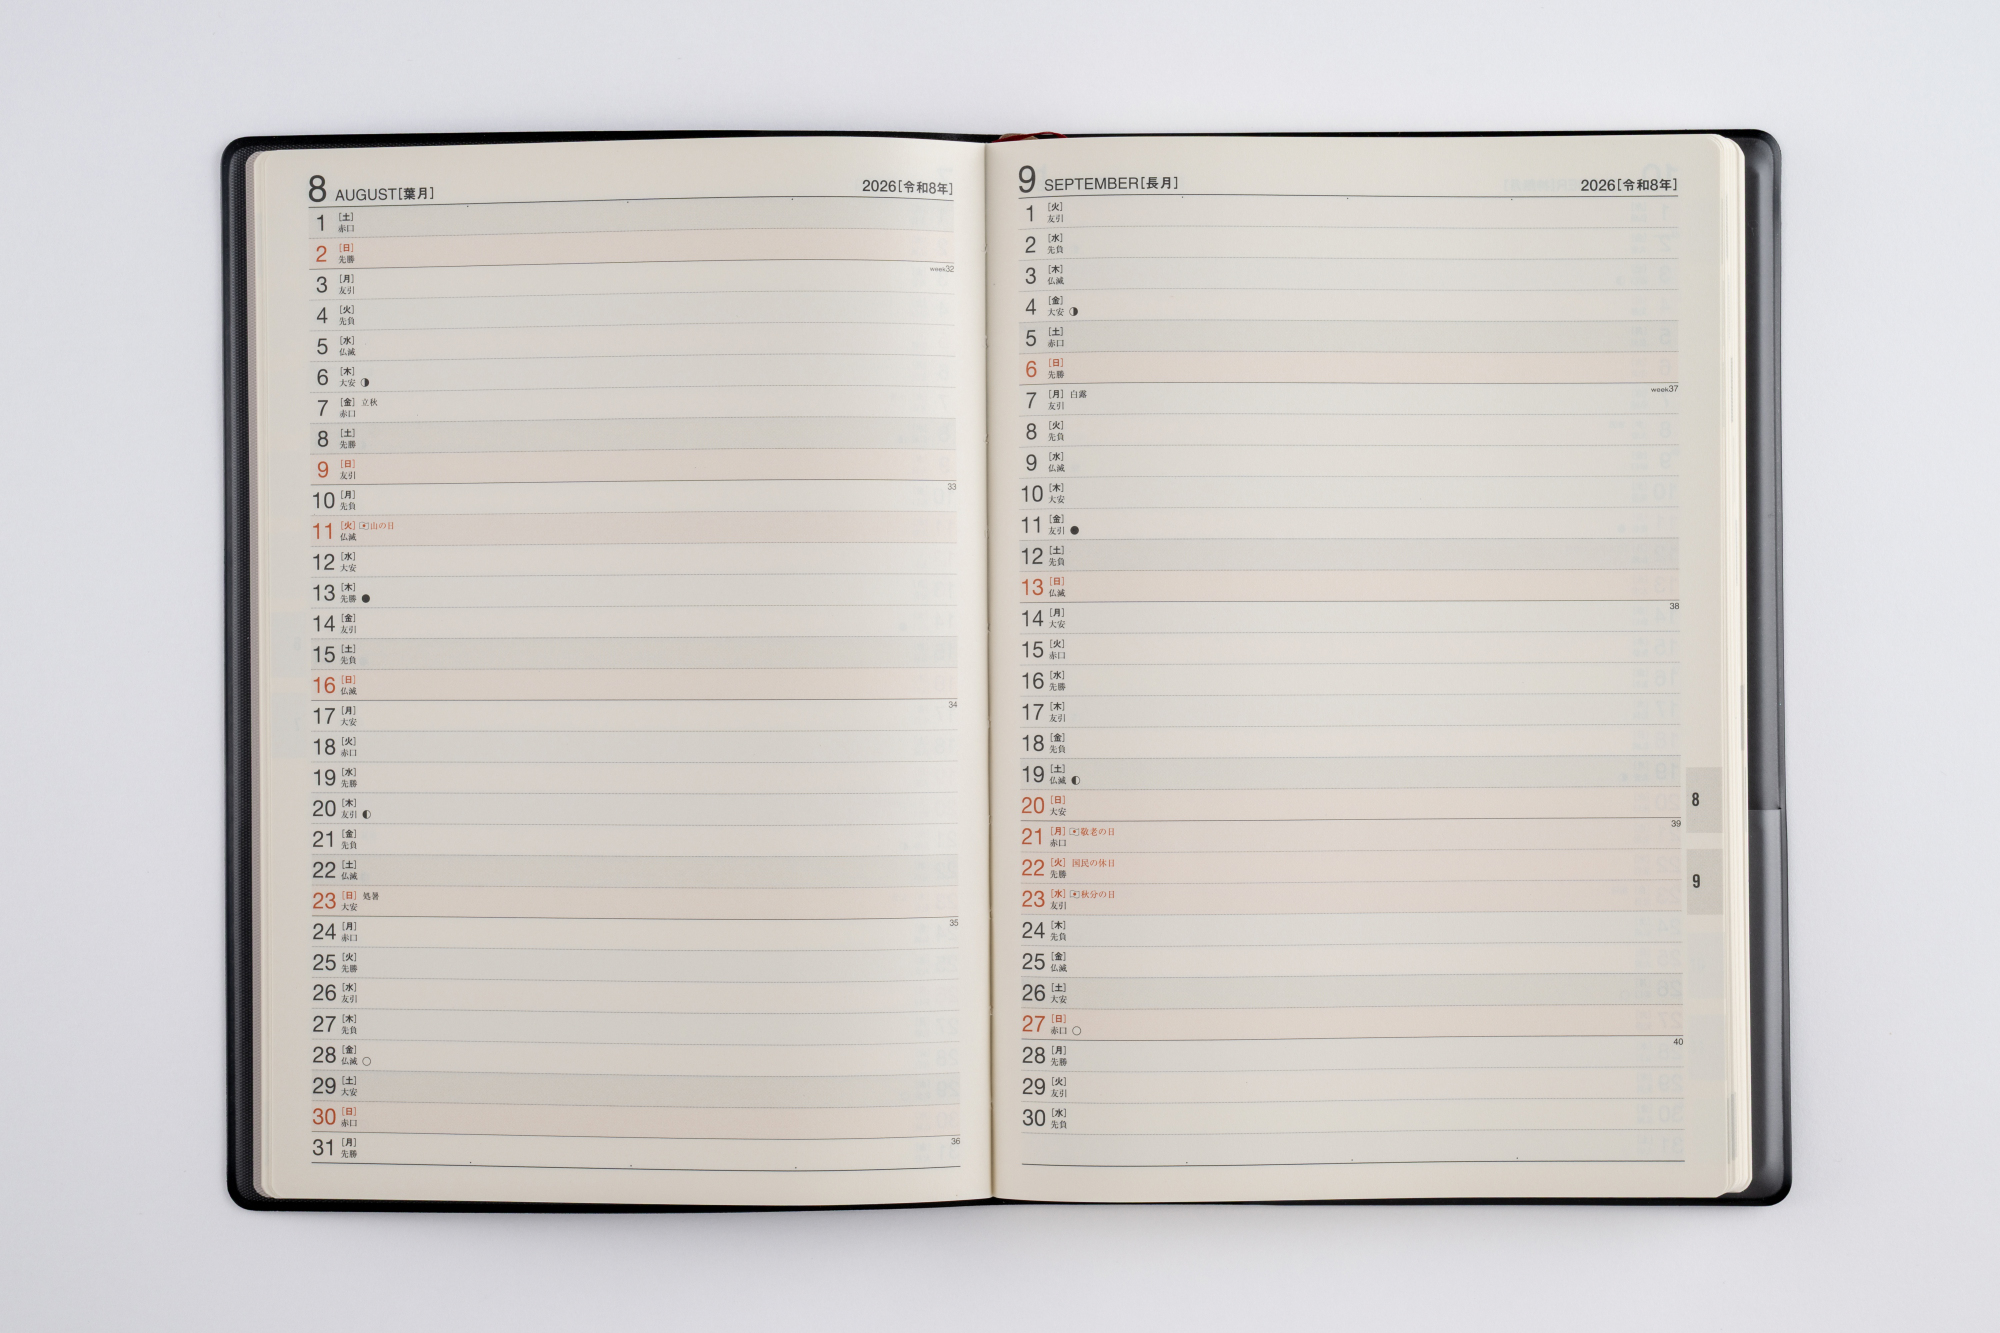 8 AUGUST[葉月] 2026[令和8年]
1 [土]
赤口
2 [日]
先勝
week32
3 [月]
友引
4 [火]
先負
5 [水]
仏滅
6 [木]
大安
7 [金] 立秋
赤口
8 [土]
先勝
9 [日]
友引
33
10 [月]
先負
11 [火] 山の日
仏滅
12 [水]
大安
13 [木]
先勝
14 [金]
友引
15 [土]
先負
16 [日]
仏滅
34
17 [月]
大安
18 [火]
赤口
19 [水]
先勝
20 [木]
友引
21 [金]
先負
22 [土]
仏滅
23 [日] 処暑
大安
35
24 [月]
赤口
25 [火]
先勝
26 [水]
友引
27 [木]
先負
28 [金]
仏滅
29 [土]
大安
30 [日]
赤口
36
31 [月]
先勝
9 SEPTEMBER[長月] 2026[令和8年]
1 [火]
友引
2 [水]
先負
3 [木]
仏滅
4 [金]
大安
5 [土]
赤口
6 [日]
先勝
week37
7 [月] 白露
友引
8 [火]
先負
9 [水]
仏滅
10 [木]
大安
11 [金]
友引
12 [土]
先負
13 [日]
仏滅
38
14 [月]
大安
15 [火]
赤口
16 [水]
先勝
17 [木]
友引
18 [金]
先負
19 [土]
仏滅
20 [日]
大安
39
21 [月] 敬老の日
赤口
22 [火] 国民の休日
先勝
23 [水] 秋分の日
友引
24 [木]
先負
25 [金]
仏滅
26 [土]
大安
27 [日]
赤口
40
28 [月]
先勝
29 [火]
友引
30 [水]
先負
8
9